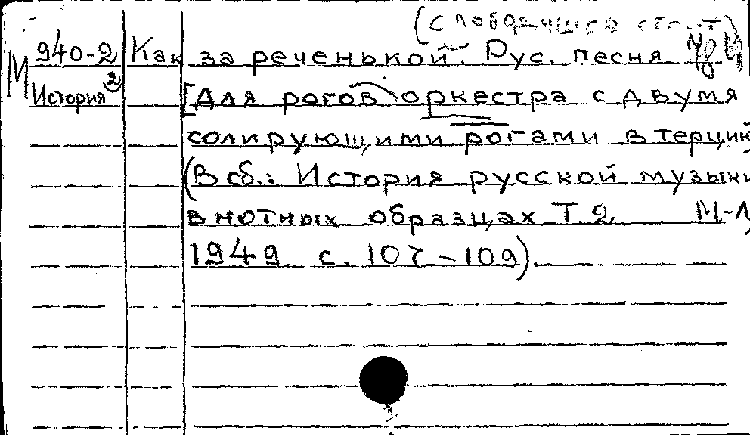 М 940-2 Как за реченькой. Рус. песня
История 2 [Для рогов оркестра с двумя
солирующими рогами в терцию
(В сб.: История русской музыки
в нотных образцах Т 2 М-Л,
1949 с. 107-109).